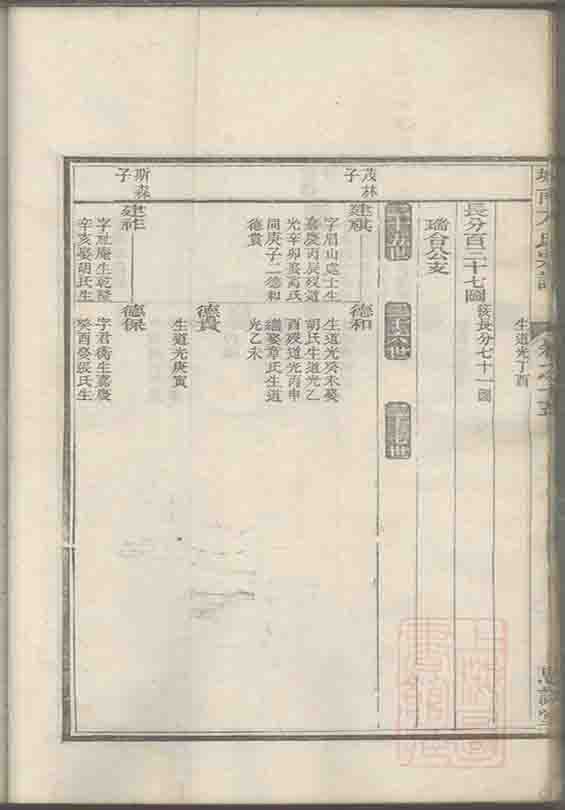 生道光丁酉
長分百二十七圖
接長分七十一圖
瑞合公支
二十五世
二十六世
二十七世
茂林
子
建祺
字眉山處士生
嘉慶丙辰歿道
光辛卯娶萬氏
同庚子二德和
德貴
德和
生道光癸未娶
胡氏生道光乙
酉歿道光丙申
繼娶章氏生道
光乙未
德貴
生道光庚寅
斯森
子
建祚
字祉庵生乾隆
辛亥娶胡氏生
德保
字君衛生嘉慶
癸酉娶張氏生